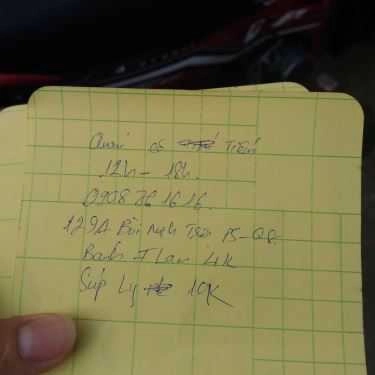 Quán cô Tiến
12h - 18h.
0908 361616.
129A Bùi Minh Trực P5-Q8.
Bánh Flan 4K
Súp Ly 10K